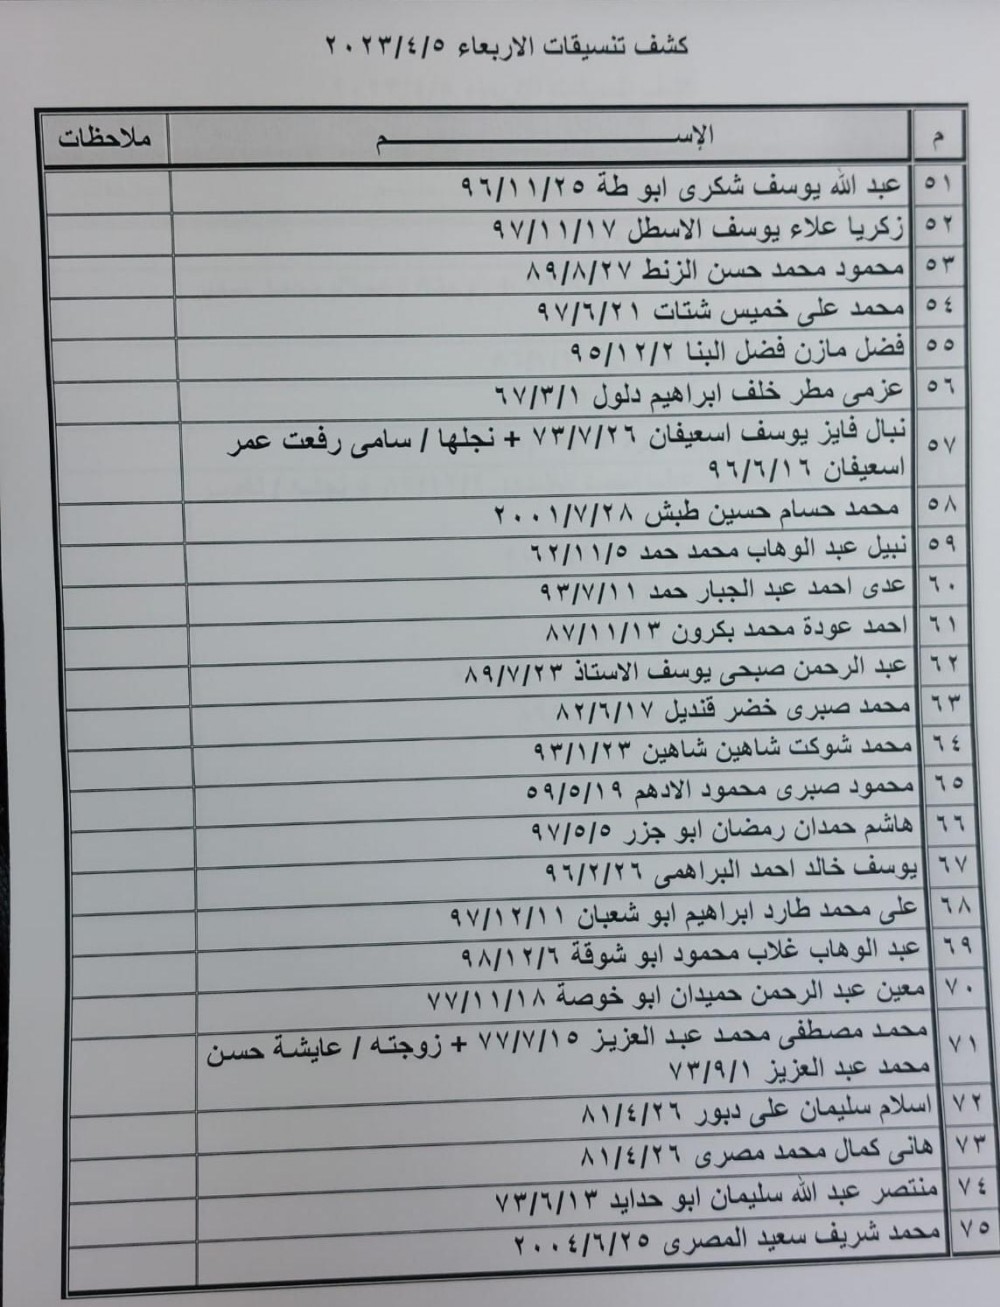 كشف تنسيقات الاربعاء ٢٠٢٣/٤/٥
م الإســـــــــم ملاحظات
٥١ عبد الله يوسف شكرى ابو طة ٩٦/١١/٢٥
٥٢ زكريا علاء يوسف الاسطل ٩٧/١١/١٧
٥٣ محمود محمد حسن الزنط ٨٩/٨/٢٧
٥٤ محمد على خميس شتات ٩٧/٦/٢١
٥٥ فضل مازن فضل البنا ٩٥/١٢/٢
٥٦ عزمى مطر خلف ابراهيم دلول ٦٧/٣/١
٥٧ نبال فايز يوسف اسعيفان ٧٣/٧/٢٦ + نجلها / سامى رفعت عمر
اسعيفان ٩٦/٦/١٦
٥٨ محمد حسام حسين طبش ٢٠٠١/٧/٢٨
٥٩ نبيل عبد الوهاب محمد حمد ٦٢/١١/٥
٦٠ عدى احمد عبد الجبار حمد ٩٣/٧/١١
٦١ احمد عودة محمد بكرون ٨٧/١١/١٣
٦٢ عبد الرحمن صبحى يوسف الاستاذ ٨٩/٧/٢٣
٦٣ محمد صبرى خضر قنديل ٨٢/٦/١٧
٦٤ محمد شوكت شاهين شاهين ٩٣/١/٢٣
٦٥ محمود صبرى محمود الادهم ٥٩/٥/١٩
٦٦ هاشم حمدان رمضان ابو جزر ٩٧/٥/٥
٦٧ يوسف خالد احمد البراهمى ٩٦/٢/٢٦
٦٨ على محمد طارد ابراهيم ابو شعبان ٩٧/١٢/١١
٦٩ عبد الوهاب غلاب محمود ابو شوقة ٩٨/١٢/٦
٧٠ معين عبد الرحمن حميدان ابو خوصة ٧٧/١١/١٨
٧١ محمد مصطفى محمد عبد العزيز ٧٧/٧/١٥ + زوجته / عايشة حسن
محمد عبد العزيز ٧٣/٩/١
٧٢ اسلام سليمان على دبور ٨١/٤/٢٦
٧٣ هانى كمال محمد مصرى ٨١/٤/٢٦
٧٤ منتصر عبد الله سليمان ابو حدايد ٧٣/٦/١٣
٧٥ محمد شريف سعيد المصرى ٢٠٠٤/٦/٢٥